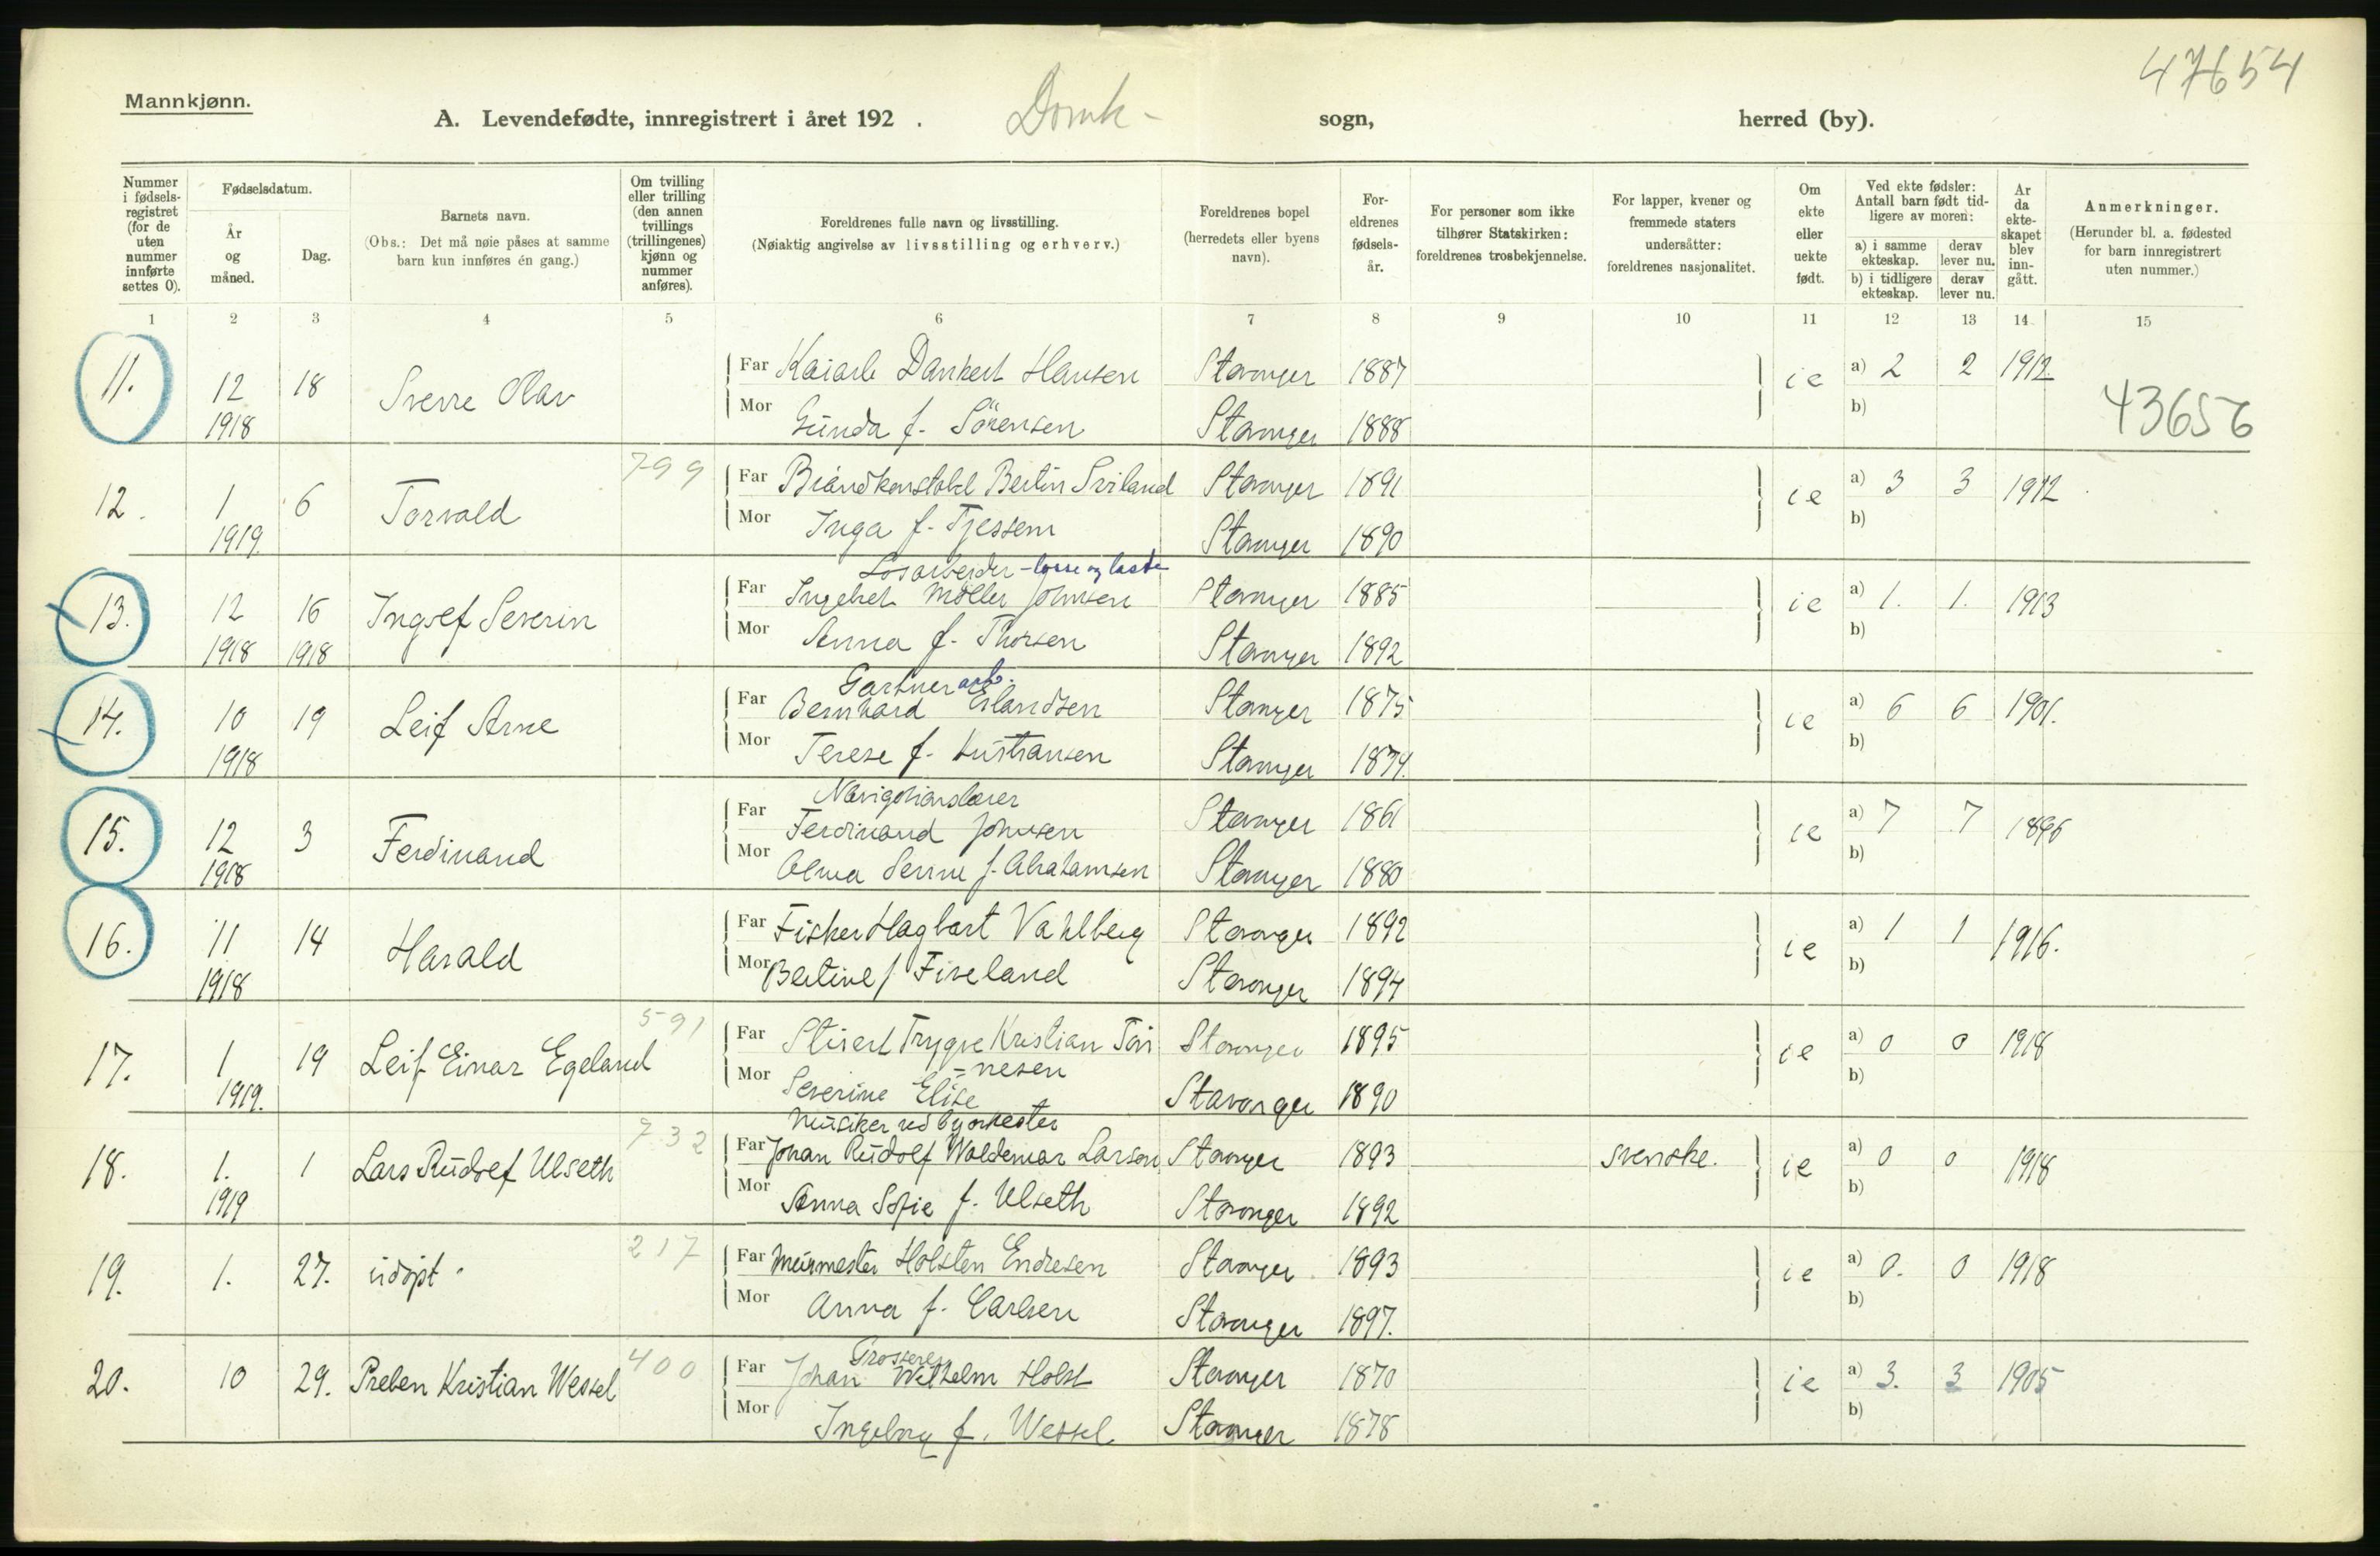 47654
Mannkjønn.
A. Levendefødte, innregistrert i året 192 . Domk- sogn, herred (by).
Nummer i fødselsregistret (for de uten nummer innførte settes 0).
Fødselsdatum.
År og måned.
Dag.
Barnets navn.
(Obs.: Det må nøie påses at samme barn kun innføres én gang.)
Om tvilling eller trilling (den annen tvillings (trillingenes) kjønn og nummer anføres).
Foreldrenes fulle navn og livsstilling.
(Nøiaktig angivelse av livsstilling og erhverv.)
Foreldrenes bopel (herredets eller byens navn).
Foreldrenes fødselsår.
For personer som ikke tilhører Statskirken: foreldrenes trosbekjennelse.
For lapper, kvener og fremmede staters undersåtter: foreldrenes nasjonalitet.
Om ekte eller uekte født.
Ved ekte fødsler: Antall barn født tidligere av moren:
a) i samme ekteskap. derav lever nu.
b) i tidligere ekteskap. derav lever nu.
År da ekteskapet blev inngått.
Anmerkninger.
(Herunder bl. a. fødested for barn innregistrert uten nummer.)
1 2 3 4 5 6 7 8 9 10 11 12 13 14 15
11. 12 18 Sverre Olav Far Dankert Hansen Stavanger 1887 ie a) 2 2 1912
1918 Mor Gunda f. Sörensen Stavanger 1888 b) 43656
12. 1 6 Torvald 799 Far Brandkonstabel Bertin Sviland Stavanger 1891 ie a) 3 3 1912
1919. Mor Inga f. Tjessem Stavanger 1890 b)
Løsarbeider - losse og laste
13. 12 16 Ingolf Severin Far Ingebret Möller Johnsen Stavanger 1885 ie a) 1. 1. 1913
1918 1918 Mor Anna f. Thorsen Stavanger 1892 b)
Gartner arb.
14. 10 19 Leif Arne Far Bernhard Erlandsen Stavanger 1875 ie a) 6 6 1901.
1918 Mor Terese f. Kristiansen Stavanger 1874. b)
Navigationslærer
15. 12 3 Ferdinand Far Ferdinand Johnsen Stavanger 1861 ie a) 7 7
1918 Mor Alma f. Abrahamsen Stavanger 1880 b)
16. 11 14 Harald Far Fisker Hagbart Vahlberg Stavanger 1892 ie a) 1 1 1916.
1918 Mor Bertine f Fiveland Stavanger 1894 b)
17. 1 19 Leif Einar Egeland 591 Far Trygve Kristian Tön Stavanger 1895 ie a) 0 0 1918
=nesen
1919. Mor Severine Elise Stavanger 1890 b)
Musiker ved byorkester
18. 1. 1 Lars Rudolf Ulseth 732 Far Johan Rudolf Waldemar Larson Stavanger 1893 svenske. ie a) 0 0 1918
1919 Mor Anna Sofie f. Ulseth Stavanger 1892 b)
19. 1. 27. udöpt. 217 Far Murmester Holsten Endresen Stavanger 1893 ie a) 0. 0 1918
Mor Anna f. Carlsen Stavanger 1897. b)
Grosserer
20. 10 29. Preben Kristian Wessel 400 Far Johan Wilhelm Holst Stavanger 1870 ie a) 3. 3 1905
Mor Ingeborg f. Wessel Stavanger 1878 b)